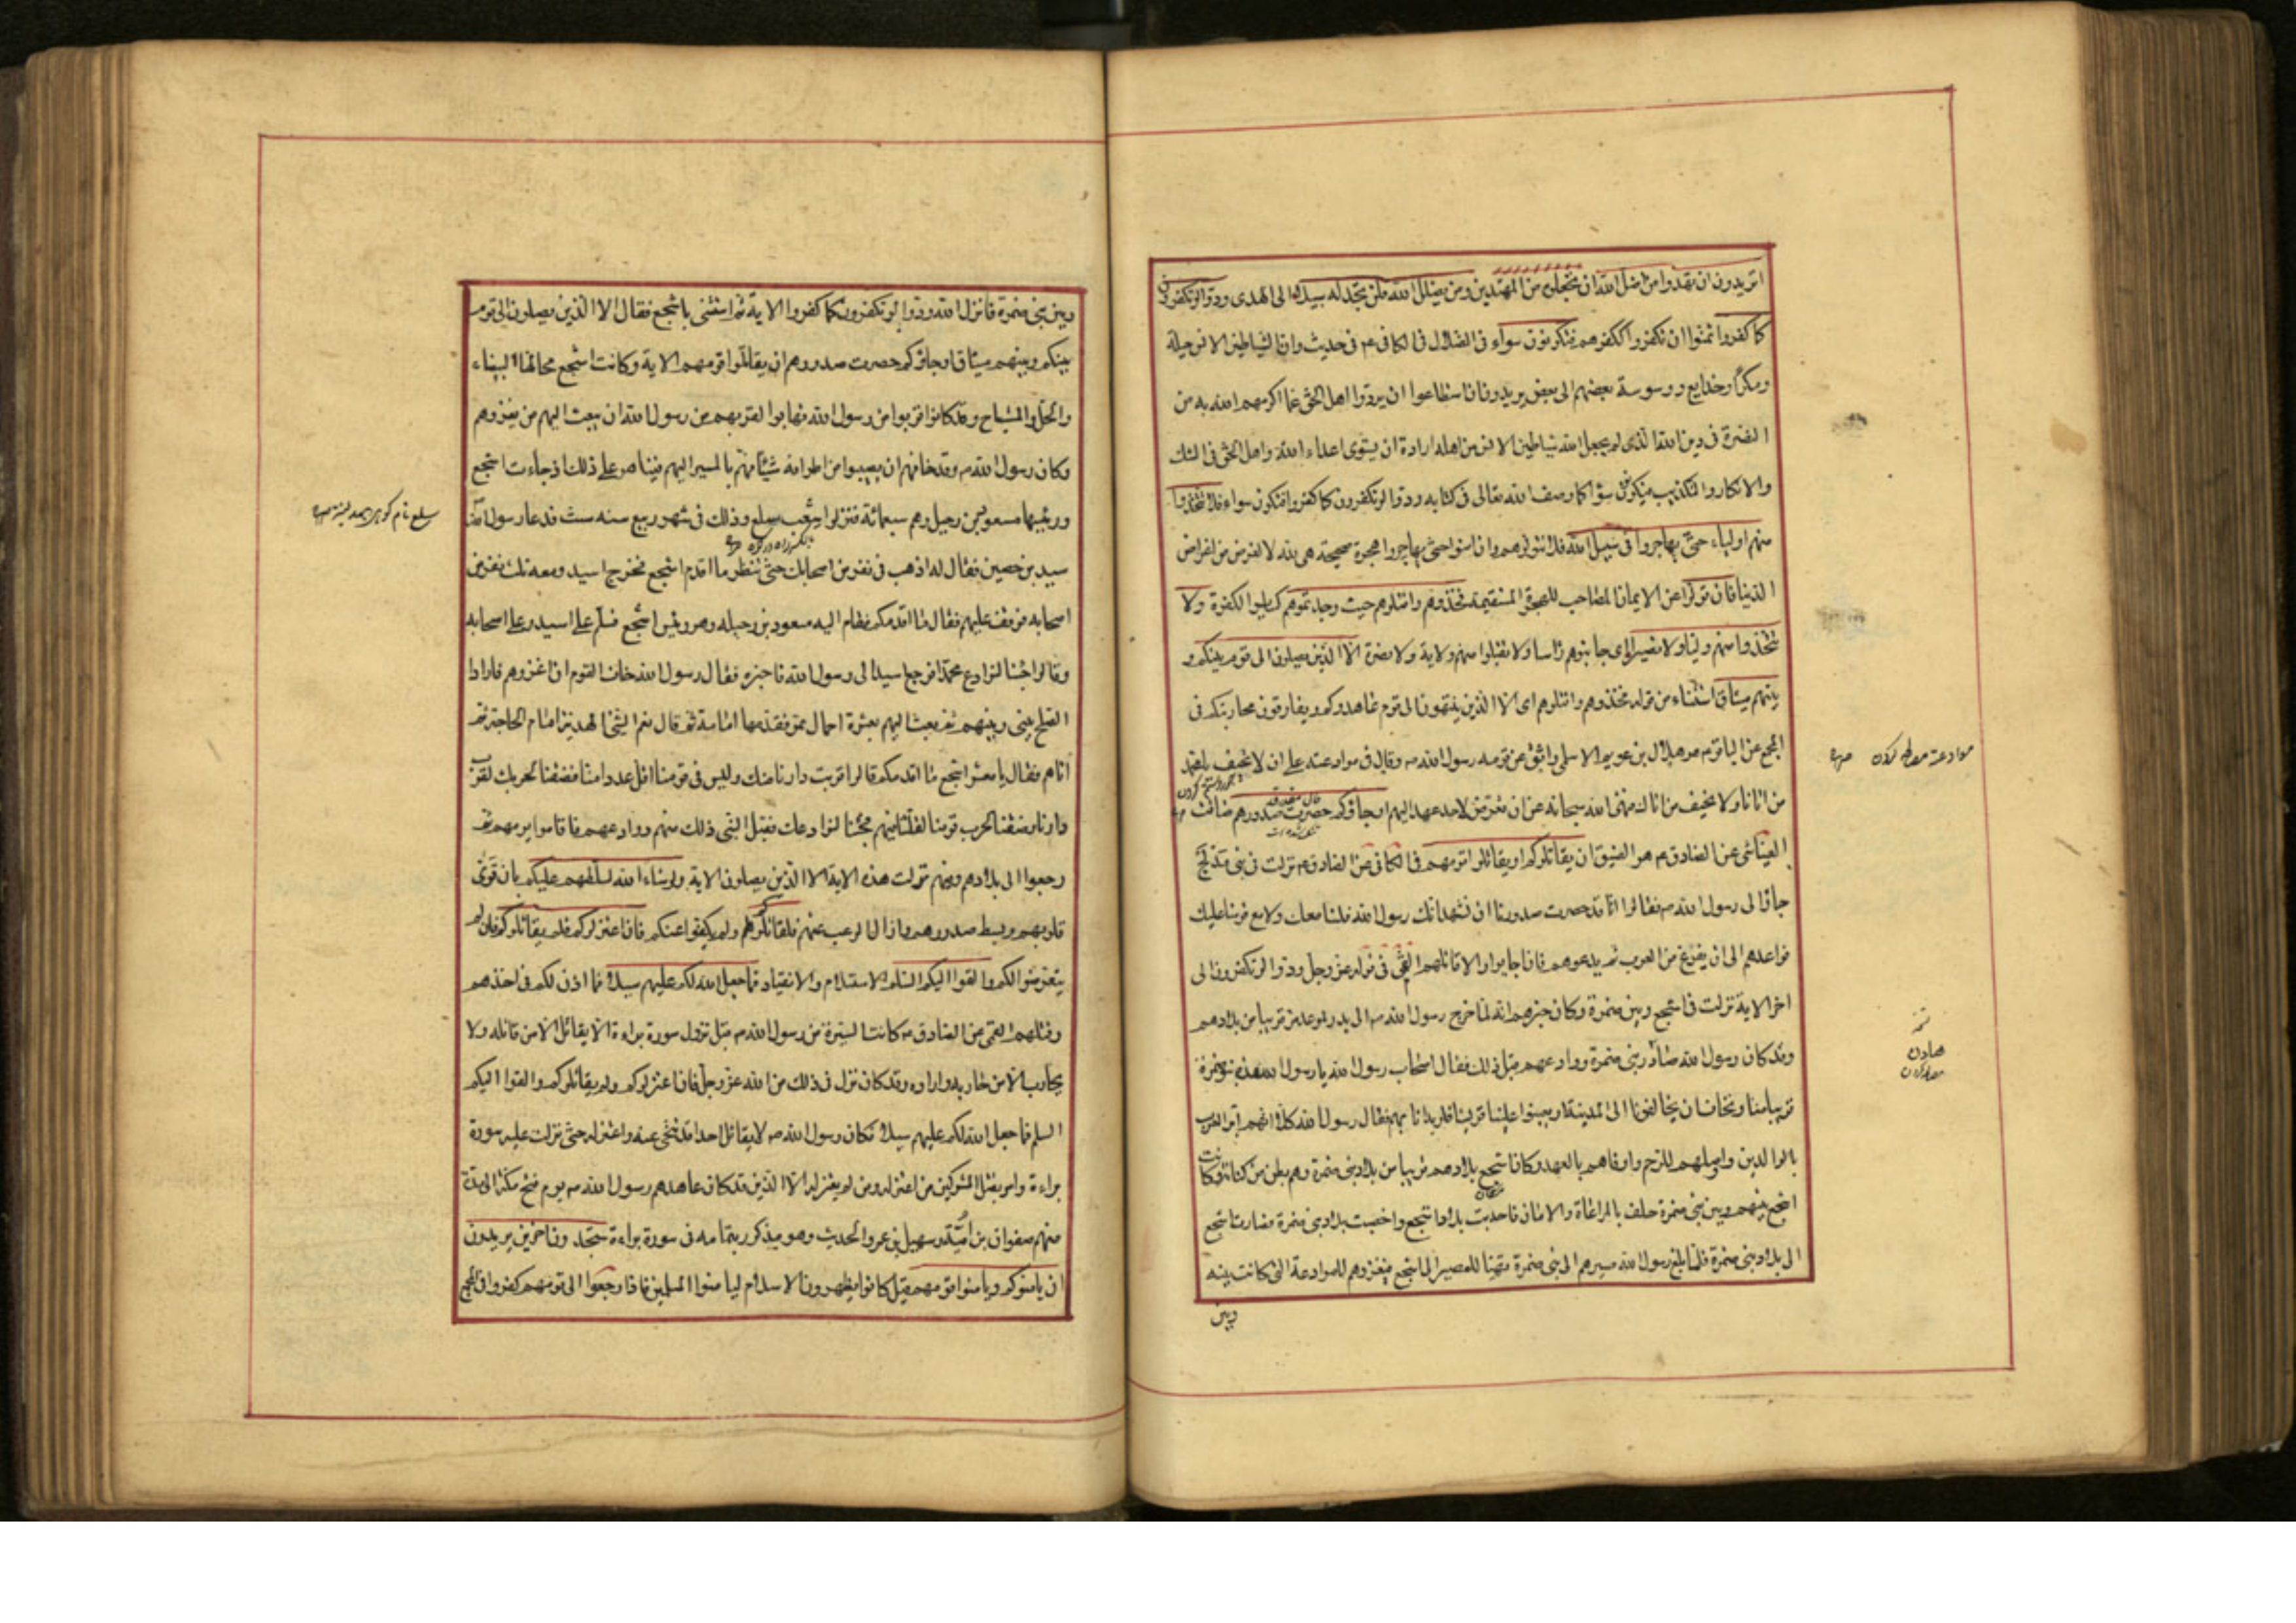 اتريدون ان تهدوا من اضل الله ان تجعلوه من المهتدين ومن يضلل الله فلن تجد له سبيلا الى الهدى ودوا لو تكفرون
كما كفروا تمنوا ان تكفروا ككفرهم فتكونون سواء فى الضلال فى الكافى عم فى حديث وان لشياطين الانس حيلة
ومكرا وخدايع ووسوسة بعضهم الى بعض يريدون ان استطاعوا ان يردوا اهل الحق عما اكرمهم الله به من
النصرة فى دين الله الذى لم يجعل الله شياطين الانس من اهله ارادة ان يستوى اعداء الله واهل الحق فى الشك
والانكار والتكذيب فيكونون سواء كما وصف الله تعالى فى كتابه ودوا لو تكفرون كما كفروا فتكونون سواء فلا تتخذوا
منهم اولياء حتى يهاجروا فى سبيل الله فلا تتولوهم وان امنوا حتى يهاجروا هجرة صحيحة هى لله لا لغرض من اغراض
الدنيا فان تولوا عن الايمان المصاحب للهجرة المستقيمة فخذوهم واقتلوهم حيث وجدتموهم كساير الكفرة ولا
تتخذوا منهم وليا ولا نصيرا اى جانبوهم راسا ولا تقبلوا منهم ولاية ولا نصرة الا الذين يصلون الى قوم بينكم و
بينهم ميثاق استثناء من قوله فخذوهم واقتلوهم اى الا الذين ينتهون الى قوم عاهدوكم ويفارقون محاربتكم فى
المجمع عن الباقر ع هو هلال بن عويمر الاسلمى واثق عن قومه رسول الله ص وقال فى موادعته على ان لا تخيف يا محمد
من اتانا ولا نخيف من اتاك فنهى الله سبحانه عن ان تعرض لاحد عهد اليهم او جاؤكم حصرت صدورهم ضاقت
العياشى عن الصادق ع هو الضيق ان يقاتلوكم او يقاتلوا قومهم فى الكافى عن الصادق ع نزلت فى بنى مدلج
جاؤا الى رسول الله ص فقالوا انا قد حصرت صدورنا ان نشهد انك رسول الله فلسنا معك ولا مع قومنا عليك
فواعدهم الى ان يفرغ من العرب ثم يدعوهم فان اجابوا والا قاتلهم القمى فى قوله عز وجل ودوا لو تكفرون الى
اخر الاية نزلت فى اشجع وبنى ضمرة وكان خبرهم انه لما خرج رسول الله ص الى بدر لموعد مر قريبا من بلادهم
وقد كان رسول الله صادر بنى ضمرة ووادعهم قبل ذلك فقال اصحاب رسول الله يا رسول الله هذه بنو ضمرة
قريبا منا ونخاف ان يخالفونا الى المدينة او يعينوا علينا قريشا فلو بدانا بهم فقال رسول الله كلا انهم ابر العرب
بالوالدين واوصلهم للرحم واوفاهم بالعهد وكان اشجع بلادهم قريبا من بلاد بنى ضمرة وهم بطن من كنانة وكانت
اشجع بينهم وبين بنى ضمرة حلف بالمراعاة والامان فاجدبت بلاد اشجع واخصبت بلاد بنى ضمرة فصارت اشجع
الى بلاد بنى ضمرة فلما بلغ رسول الله مسيرهم الى بنى ضمرة تهيا للمصير الى اشجع فيغزوهم للموادعة التى كانت بينه
وبين
موادعة مصالحه كردن
وبين بنى ضمرة فانزل الله ودوا لو تكفرون كما كفروا الاية ثم استثنى باشجع فقال الا الذين يصلون الى قوم
بينكم وبينهم ميثاق او جاؤكم حصرت صدورهم ان يقاتلوا قومهم الاية وكانت اشجع محالها البيضاء
والحل والمستباح وقد كانوا قربوا من رسول الله فهابوا لقربهم من رسول الله ان يبعث اليهم من يغزوهم
وكان رسول الله ص وقد خافهم ان يصيبوا من اطرافه شيئا فهم بالمسير اليهم فبينا هو على ذلك اذ جاءت اشجع
ورئيسها مسعود بن رجيل وهم سبعمائة فنزلوا شعب سلع وذلك فى شهر ربيع سنه ست فدعا رسول الله
سيد بن حصين فقال له اذهب فى نفر من اصحابك حتى تنظر ما اقدم اشجع فخرج اسيد ومعه ثلث نفر من
اصحابه فوقف عليهم فقال ما اقدمكم فقام اليه مسعود بن رجيله وهو رئيس اشجع فسلم على اسيد وعلى اصحابه
وقالوا جئنا لنوادع محمدا فرجع اسيد الى رسول الله فاخبره فقال رسول الله خاف القوم ان اغزوهم فارادوا
الصلح بينى وبينهم ثم بعث اليهم بعشرة احمال تمر فقدمها امامه ثم قال نعم الشئ الهدية امام الحاجة ثم
اتاهم فقال يا معشر اشجع ما اقدمكم قالوا قربت دارنا منك وليس فى قومنا اقل عددا منا فضقنا لحربك لقرب
دارنا وضقنا لحرب قومنا لقلتنا فيهم فجئنا لنوادعك فقبل النبى ذلك منهم ووادعهم فاقاموا يومهم ثم
رجعوا الى بلادهم وفيهم نزلت هذه الاية الا الذين يصلون الاية ولو شاء الله لسلطهم عليكم بان قوى
قلوبهم وبسط صدورهم وازال الرعب عنهم فلقاتلوكم ولم يكفوا عنكم فان اعتزلوكم فلم يقاتلوكم فان لم
يتعرضوا لكم والقوا اليكم السلم الاستسلام والانقياد فما جعل الله لكم عليهم سبيلا فما اذن لكم فى اخذهم
وقتلهم القمى عن الصادق ع كانت السيرة من رسول الله ص قبل نزول سورة براءة الا يقاتل الا من قاتله ولا
يحارب الا من حاربه واراده وقد كان نزل فى ذلك من الله عز وجل فان اعتزلوكم ولم يقاتلوكم والقوا اليكم
السلم فما جعل الله لكم عليهم سبيلا فكان رسول الله ص لا يقاتل احدا قد تنحى عنه واعتزله حتى نزلت عليه سورة
براءة وامر بقتل المشركين من اعتزله ومن لم يعتزله الا الذين قد كان عاهدهم رسول الله ص يوم فتح مكة الى مدة
منهم صفوان بن امية وسهيل بن عمرو الحديث وهو مذكور بتمامه فى سورة براءة ستجدون اخرين يريدون
ان يامنوكم ويامنوا قومهم قيل كانوا يظهرون الاسلام ليامنوا المسلمين فاذا رجعوا الى قومهم كفروا فى المجمع